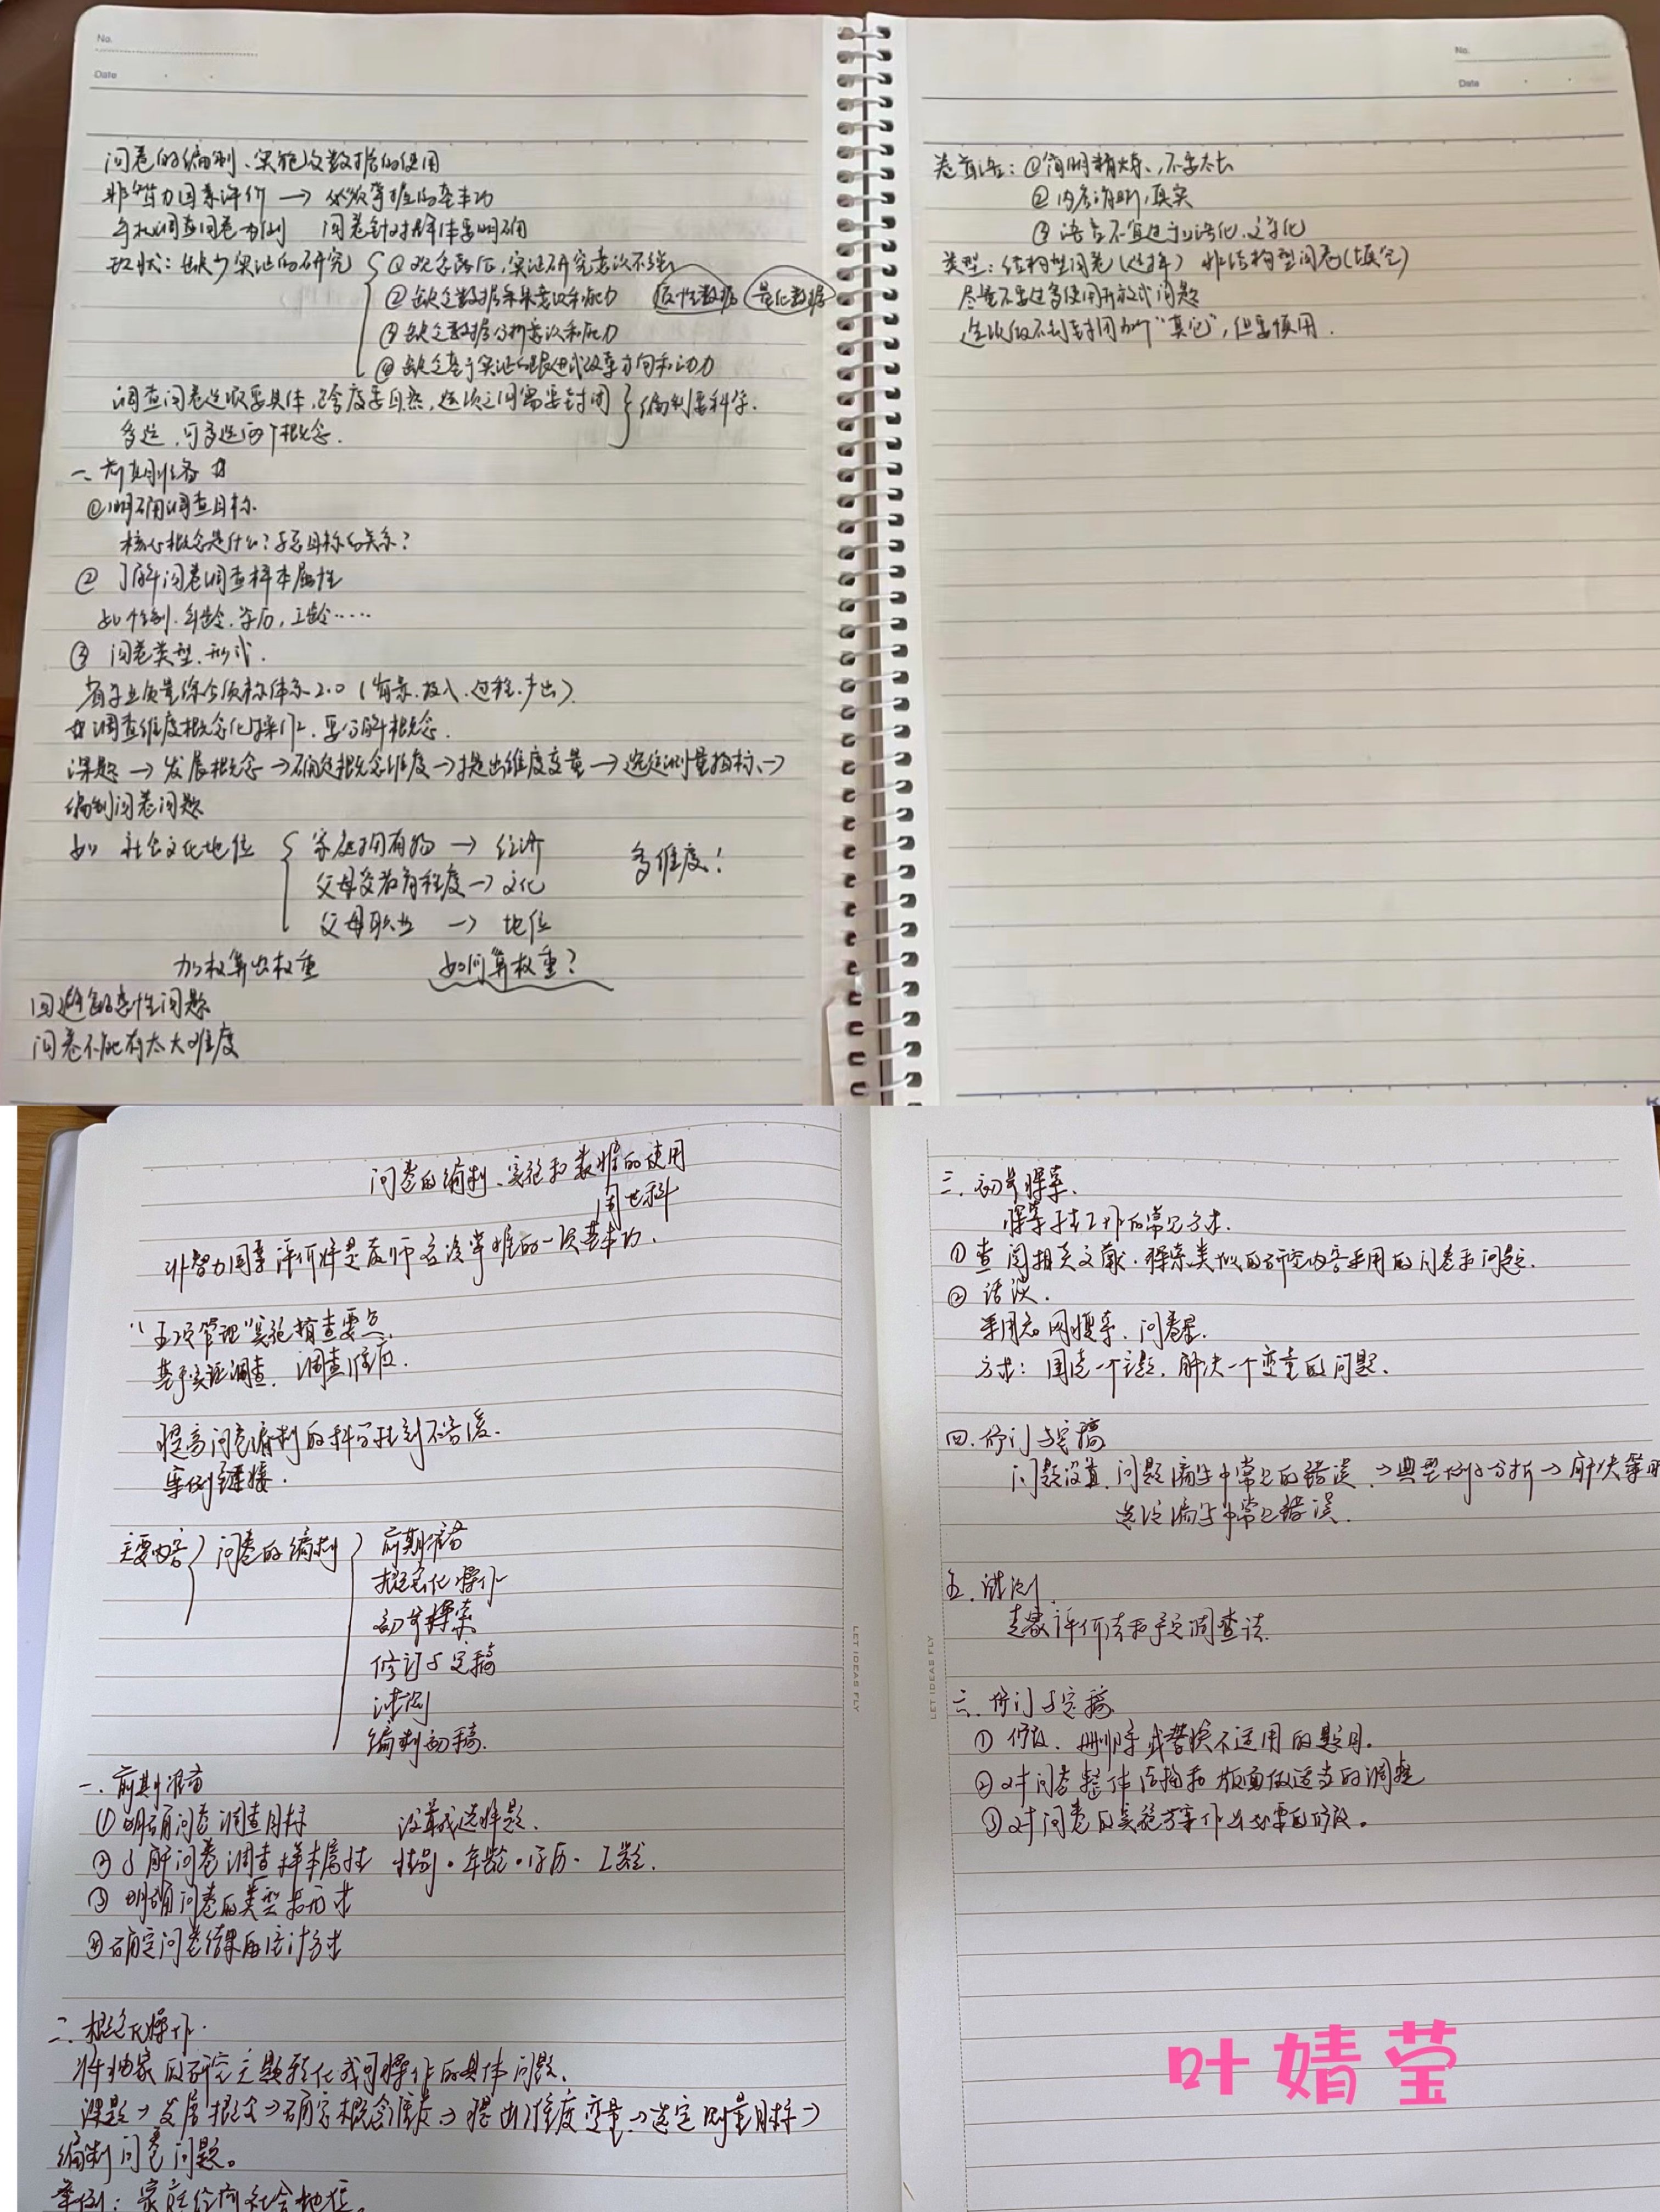 No.
Date
问卷的编制、实施及数据的使用
非智力因素评价 → 必须掌握的基本功
手机调查问卷为例 问卷针对群体要明确
现状：缺少实证的研究 ①观念落后，实证研究意识不强
②缺乏数据采集意识和能力 质性数据 量化数据
③缺乏数据分析意识和能力
④缺乏基于实证的跟进式改革方向和动力
调查问卷选项要具体，跨度要自然，选项之间需要封闭 编制要科学.
多选，可多选两个概念.
一、前期准备
①明确调查目标
核心概念是什么？与总目标的关系？
② 了解问卷调查样本属性
如性别.年龄.学历，工龄……
③ 问卷类型.形式.
省学业质量综合指标体系2.0（背景.投入.过程.产出）.
调查维度概念化操作，要分解概念.
课题 → 发展概念 → 确定概念维度 → 提出维度变量 → 选定测量指标 →
编制问卷问题
如 社会文化地位 家庭拥有物 → 经济 多维度！
父母受教育程度 → 文化
父母职业 → 地位
加权算出权重 如何算权重？
回避敏感性问题
问卷不能有太大难度
No.
Date
卷首语：①简明精炼，不要太长
② 内容清晰，真实
③ 语言不宜过于口语化.文学化
类型：结构型问卷（选择） 非结构型问卷（填空）
尽量不要过多使用开放式问题
选项做不到封闭加个“其它”，但要慎用.
问卷的编制、实施和数据的使用
周世科
非智力因素评价将是教师应该掌握的一项基本功.
“五项管理”实施抽查要点.
基于实证调查. 调查维度.
提高问卷编制的科学性刻不容缓.
案例链接.
主要内容 问卷的编制 前期准备
概念化操作
初步探索
修订与定稿
试测
编制初稿.
一. 前期准备
① 明确问卷调查目标 设算成选择题.
② 了解问卷调查样本属性 性别·年龄·学历·工龄.
③ 明确问卷的类型和形式
④ 确定问卷结果的统计方式
二. 概念化操作.
将抽象的研究主题转化成可操作的具体问题.
课题 → 发展概念 → 确定概念维度 → 提出维度变量 → 选定测量目标 →
编制问卷问题。
案例：家庭经济社会地位。
三. 初步探索.
探索性工作的常见方式.
① 查阅相关文献. 探索类似的研究内容采用的问卷和问题.
② 访谈.
采用知网搜索. 问卷星.
方式：围绕一个主题. 解决一个变量的问题.
四. 修订与定稿
问题设置. 问题编写中常见的错误 → 典型例子分析 → 解决策略
选项编写中常见错误.
五. 试测
专家评价法和预调查法.
六. 修订与定稿
① 修改. 删除或替换不适用的题目。
② 对问卷整体结构和版面做适当的调整
③ 对问卷的实施方案作出必要的修改。
LET IDEAS FLY
LET IDEAS FLY
叶婧莹